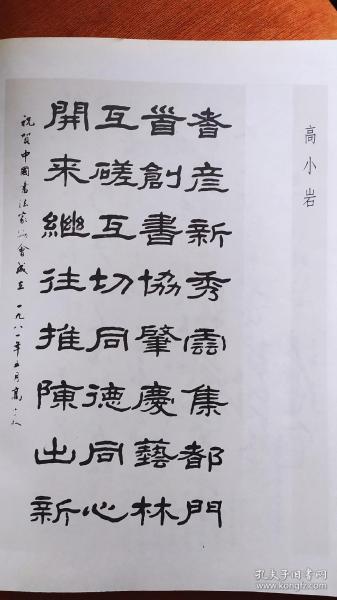 高小岩
耆彦新秀雲集都門
首創書協肇慶藝林
互磋互切同德同心
開来繼往推陳出新
祝賀中國書法家協會成立一九八一年五月高小岩
孔夫子旧书网
kongfz.com